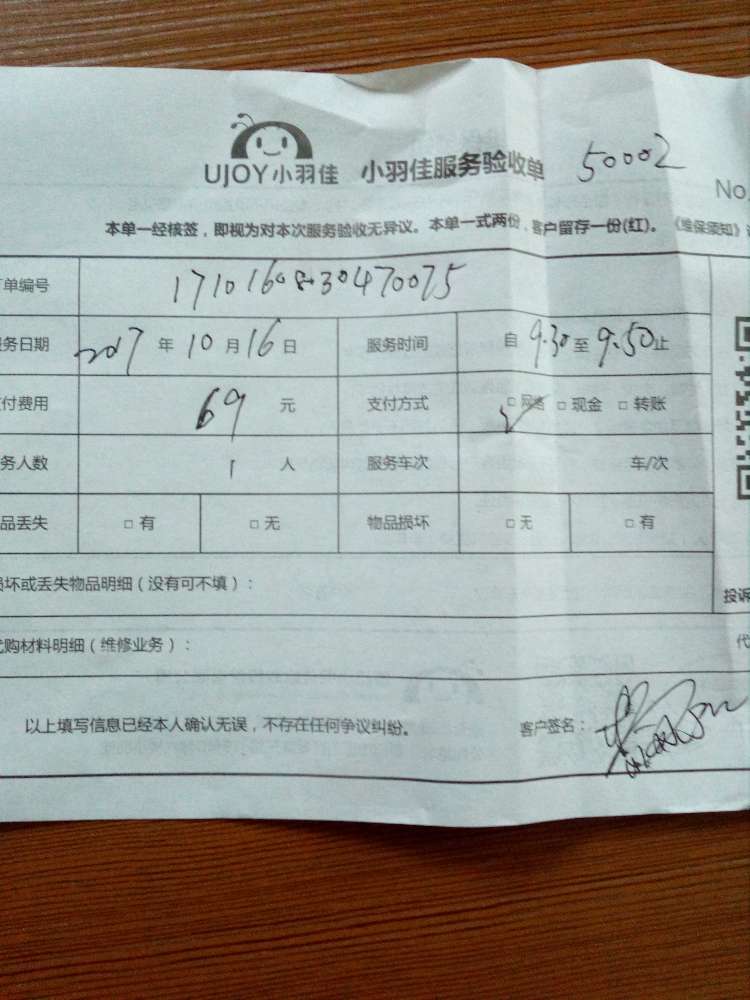 UJOY小羽佳 小羽佳服务验收单 50002
No.
本单一经核签，即视为对本次服务验收无异议。本单一式两份，客户留存一份(红)。《维保须知》
单编号 1710160830470075
务日期 2017 年 10 月 16 日 服务时间 自 9.30 至 9.50 止
付费用 69 元 支付方式 □ 网络 □ 现金 □ 转账
务人数 1 人 服务车次 车/次
品丢失 □ 有 □ 无 物品损坏 □ 无 □ 有
损坏或丢失物品明细（没有可不填）：
投诉
代购材料明细（维修业务）：
代
以上填写信息已经本人确认无误，不存在任何争议纠纷。 客户签名：